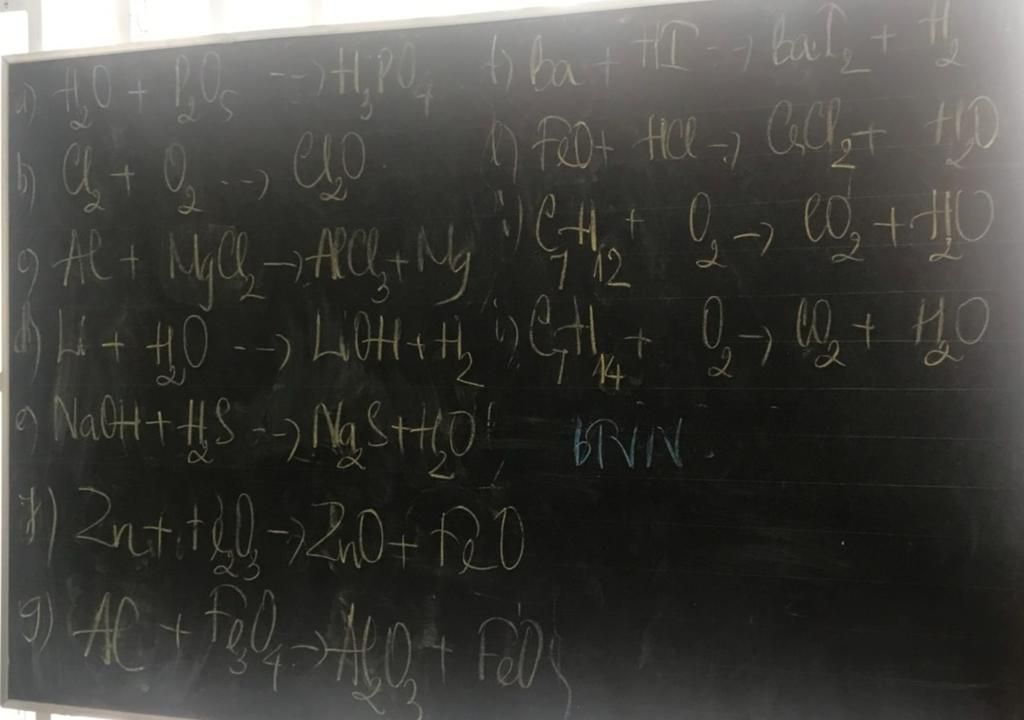 a) H₂O + P₂O₅ --→ H₃PO₄
b) Cl₂ + O₂ --→ Cl₂O
c) Al + MgCl₂ -→ AlCl₃ + Mg
d) Li + H₂O --→ LiOH + H₂
e) NaOH + H₂S --→ Na₂S + H₂O
f) Zn + Fe₂O₃ -→ ZnO + FeO
g) Al + Fe₃O₄ -→ Al₂O₃ + FeO
Ba + HI --→ BaI₂ + H₂
FeO + HCl -→ Cl₂ + H₂O
C₇H₁₂ + O₂ -→ CO₂ + H₂O
i) C₇H₁₄ + O₂ -→ CO₂ + H₂O
BTVN